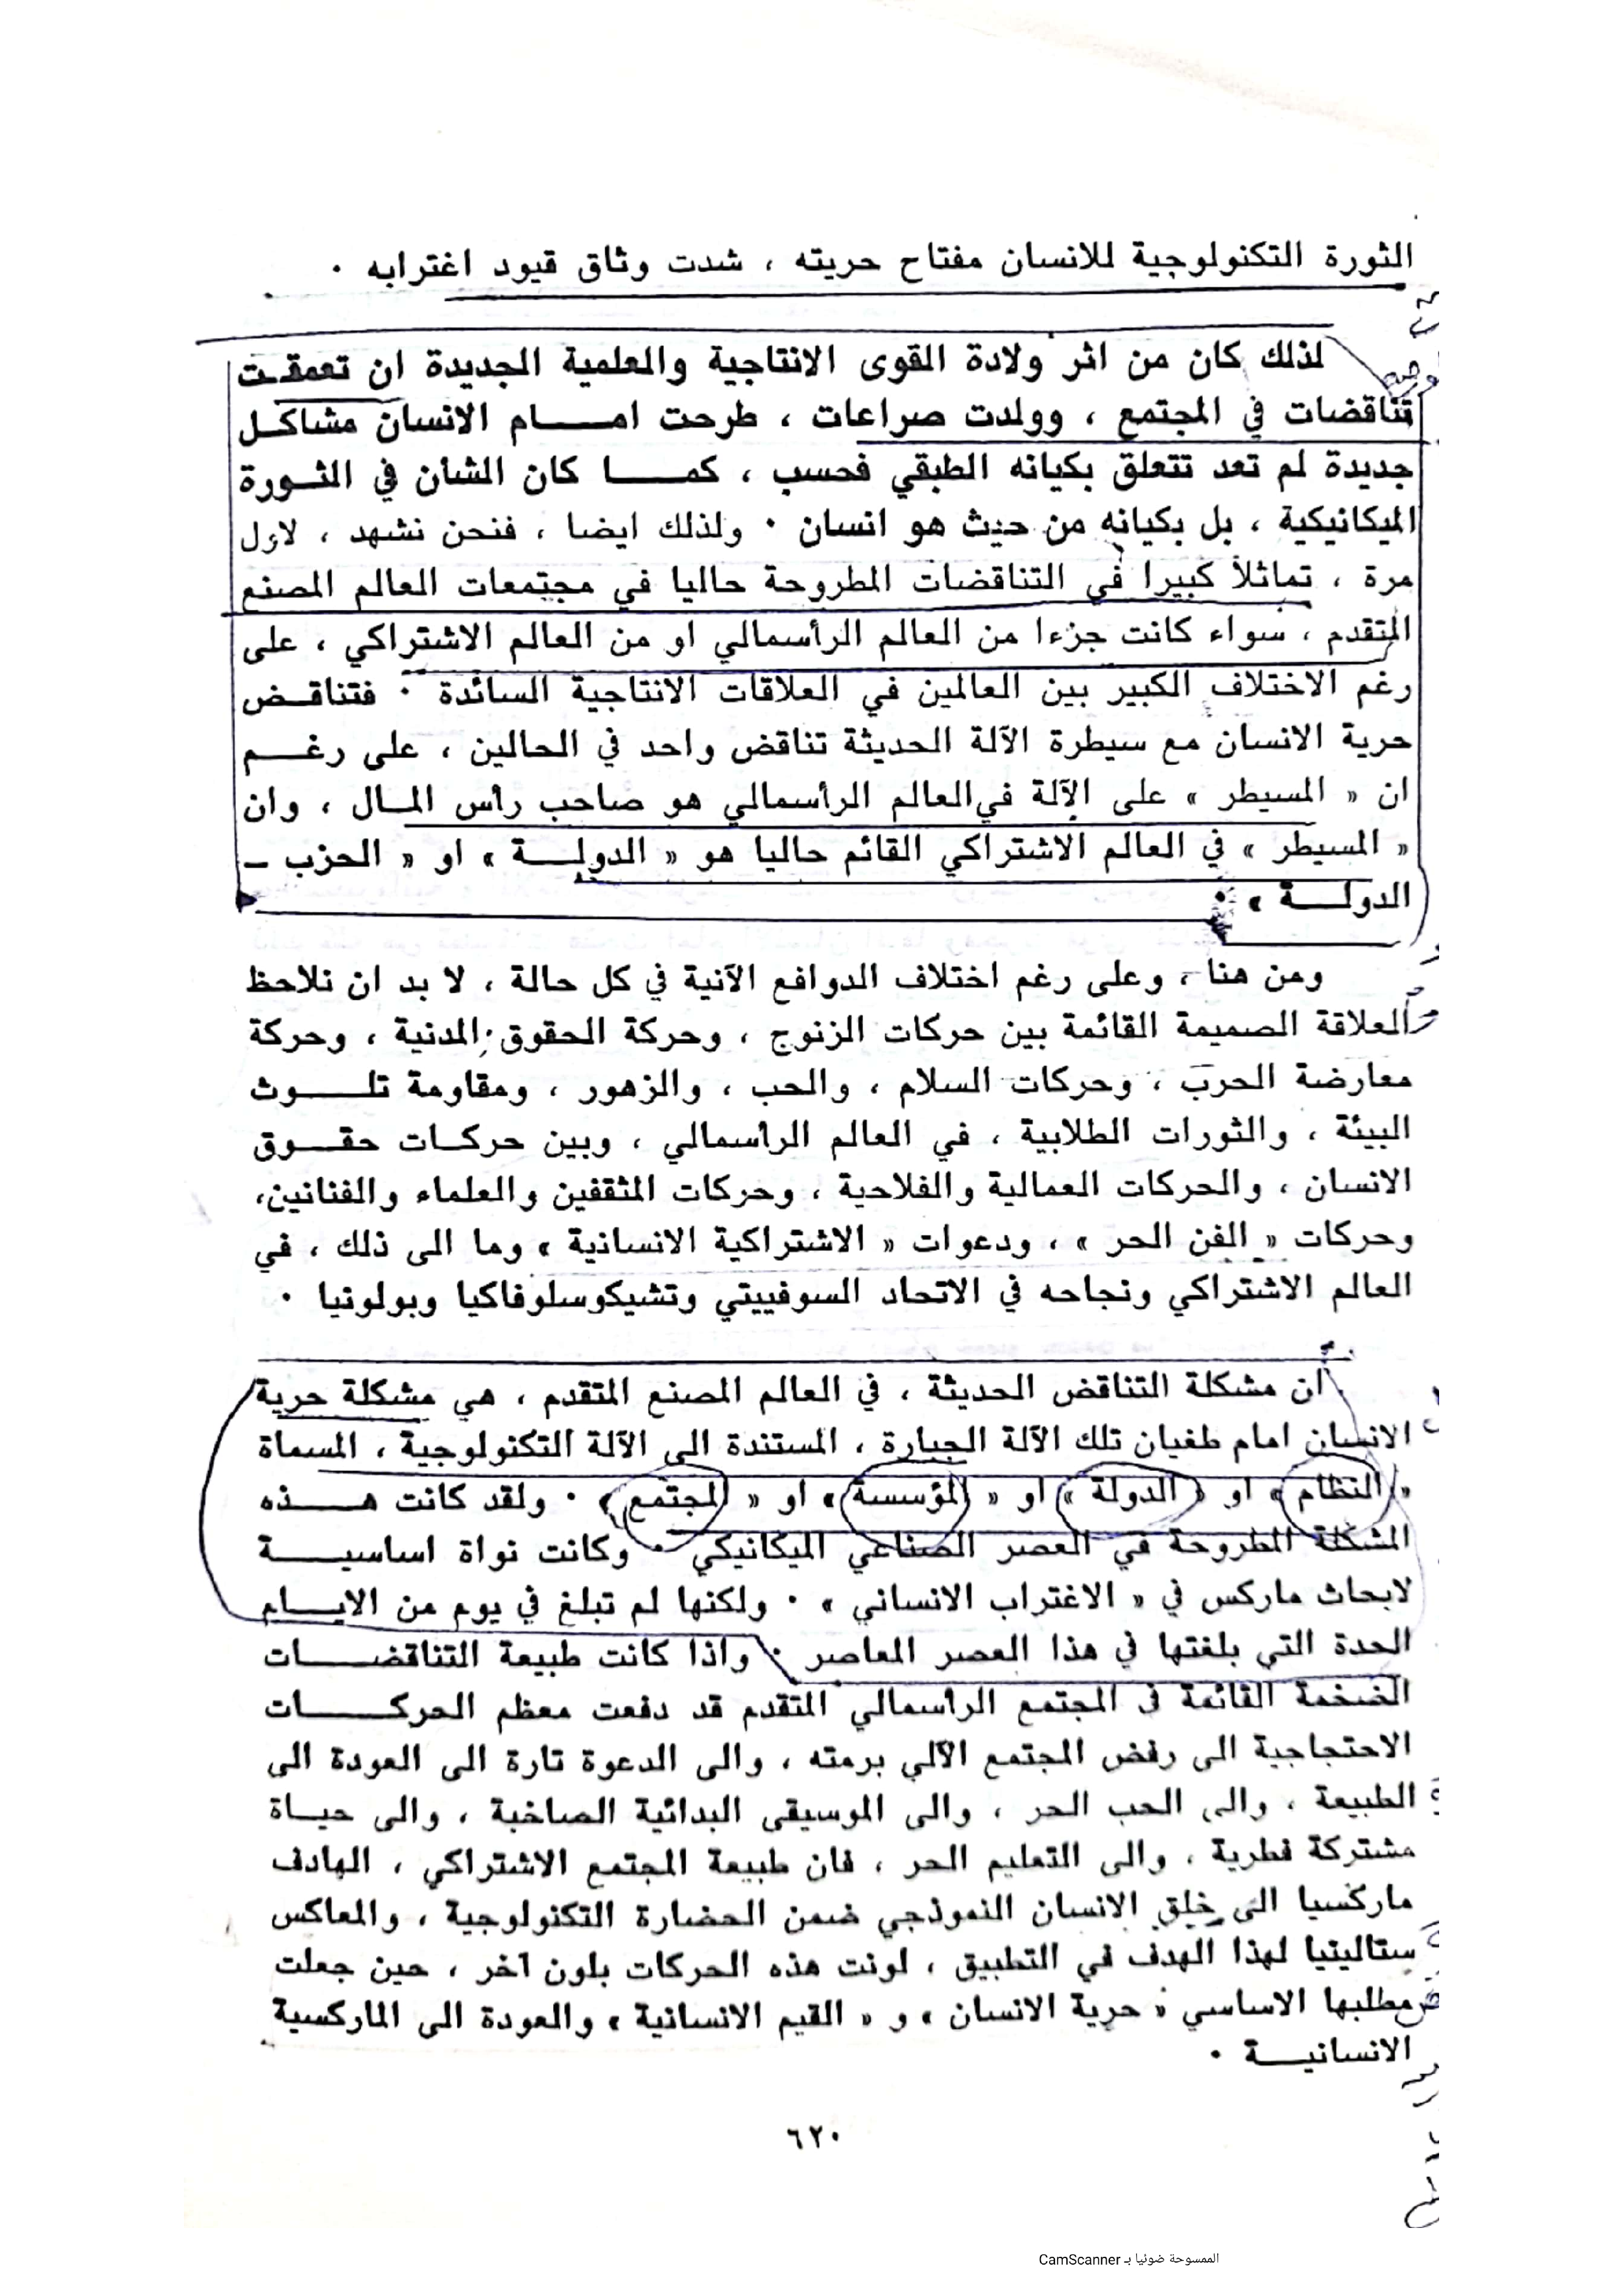 الثورة التكنولوجية للانسان مفتاح حريته ، شدت وثاق قيود اغترابه ٠
لذلك كان من اثر ولادة القوى الانتاجية والعلمية الجديدة ان تعمقـت
تناقضات في المجتمع ، وولدت صراعات ، طرحت امـــــام الانسان مشاكـل
جديدة لم تعد تتعلق بكيانه الطبقي فحسب ، كمــــا كان الشأن في الثـورة
الميكانيكية ، بل بكيانه من حيث هو انسان ٠ ولذلك ايضا ، فنحن نشهد ، لاول
مرة ، تماثلاً كبيرا في التناقضات المطروحة حاليا في مجتمعات العالم المصنع
المتقدم ، سواء كانت جزءا من العالم الرأسمالي او من العالم الاشتراكي ، على
رغم الاختلاف الكبير بين العالمين في العلاقات الانتاجية السائدة ٠ فتناقـض
حرية الانسان مع سيطرة الآلة الحديثة تناقض واحد في الحالين ، على رغـــم
ان « المسيطر » على الآلة في العالم الرأسمالي هو صاحب رأس المـال ، وان
« المسيطر » في العالم الاشتراكي القائم حاليا هو « الدولـــة » او « الحزب ــ
الدولـــة » ٠
ومن هنا ، وعلى رغم اختلاف الدوافع الآنية في كل حالة ، لا بد ان نلاحظ
العلاقة الصميمة القائمة بين حركات الزنوج ، وحركة الحقوق المدنية ، وحركة
معارضة الحرب ، وحركات السلام ، والحب ، والزهور ، ومقاومة تلـــوث
البيئة ، والثورات الطلابية ، في العالم الرأسمالي ، وبين حركـات حقـــوق
الانسان ، والحركات العمالية والفلاحية ، وحركات المثقفين والعلماء والفنانين،
وحركات « الفن الحر » ، ودعوات « الاشتراكية الانسانية » وما الى ذلك ، في
العالم الاشتراكي ونجاحه في الاتحاد السوفييتي وتشيكوسلوفاكيا وبولونيا ٠
ان مشكلة التناقض الحديثة ، في العالم المصنع المتقدم ، هي مشكلة حرية
الانسان امام طغيان تلك الآلة الجبارة ، المستندة الى الآلة التكنولوجية ، المسماة
« النظام » او « الدولة » او « المؤسسة » او « المجتمع » ٠ ولقد كانت هـــذه
المشكلة المطروحة في العصر الصناعي الميكانيكي ٠ وكانت نواة اساسيـــة
لابحاث ماركس في « الاغتراب الانساني » ٠ ولكنها لم تبلغ في يوم من الايـــام
الحدة التي بلغتها في هذا العصر المعاصر ٠ واذا كانت طبيعة التناقضـــات
الضخمة القائمة في المجتمع الرأسمالي المتقدم قد دفعت معظم الحركـــات
الاحتجاجية الى رفض المجتمع الآلي برمته ، والى الدعوة تارة الى العودة الى
الطبيعة ، والى الحب الحر ، والى الموسيقى البدائية الصاخبة ، والى حيـاة
مشتركة فطرية ، والى التعليم الحر ، فان طبيعة المجتمع الاشتراكي ، الهادف
ماركسيا الى خلق الانسان النموذجي ضمن الحضارة التكنولوجية ، والمعاكس
ستالينيا لهذا الهدف في التطبيق ، لونت هذه الحركات بلون آخر ، حين جعلت
مطلبها الاساسي « حرية الانسان » و « القيم الانسانية » والعودة الى الماركسية
الانسانيـــة ٠
٦٢٠
الممسوحة ضوئيا بـ CamScanner